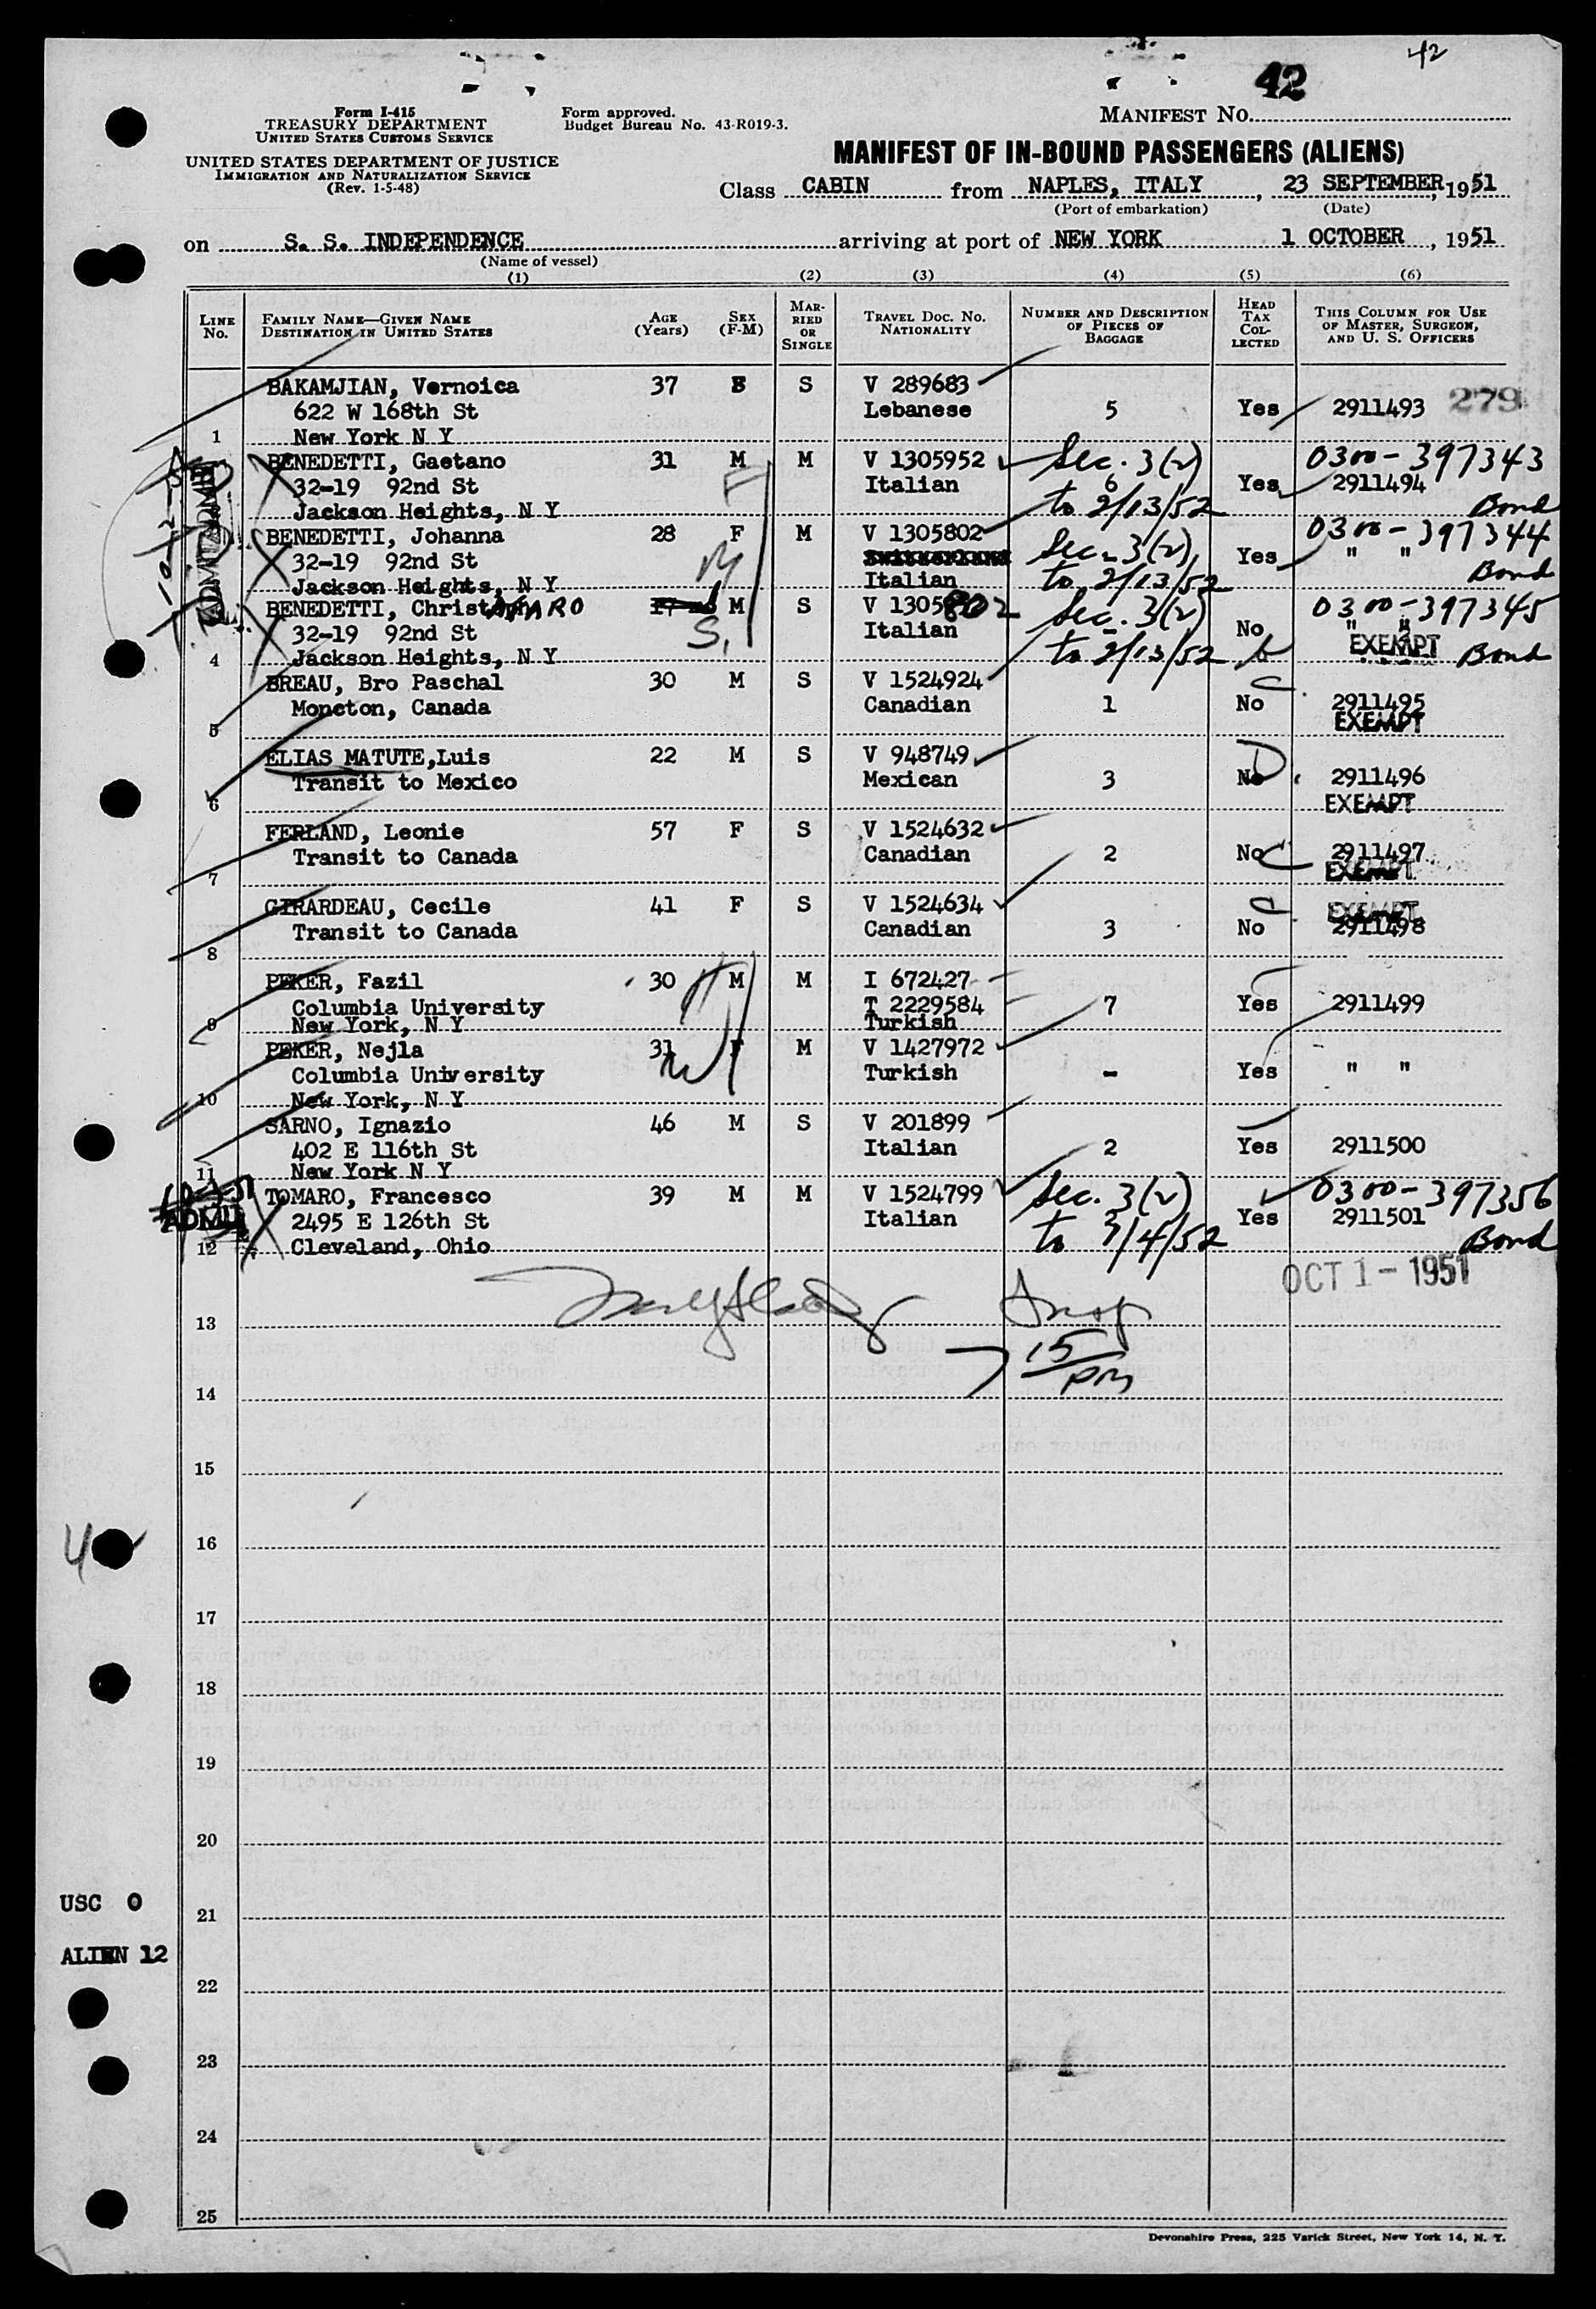 42
42
Form I-415
TREASURY DEPARTMENT
UNITED STATES CUSTOMS SERVICE
Form approved.
Budget Bureau No. 43-R019-3.
MANIFEST NO.
UNITED STATES DEPARTMENT OF JUSTICE
IMMIGRATION AND NATURALIZATION SERVICE
(Rev. 1-5-48)
MANIFEST OF IN-BOUND PASSENGERS (ALIENS)
Class CABIN from NAPLES, ITALY, 23 SEPTEMBER, 1951
(Port of embarkation) (Date)
on S. S. INDEPENDENCE arriving at port of NEW YORK 1 OCTOBER, 1951
(Name of vessel)
(1) (2) (3) (4) (5) (6)
LINE NO. FAMILY NAME—GIVEN NAME DESTINATION IN UNITED STATES AGE (Years) SEX (F-M) MARRIED OR SINGLE TRAVEL DOC. NO. NATIONALITY NUMBER AND DESCRIPTION OF PIECES OF BAGGAGE HEAD TAX COLLECTED THIS COLUMN FOR USE OF MASTER, SURGEON, AND U. S. OFFICERS
BAKAMJIAN, Vernoica 37 S V 289683
622 W 168th St Lebanese 5 Yes 2911493 279
1 New York N Y
BENEDETTI, Gaetano 31 M M V 1305952 Sec. 3(2) 0300-397343
32-19 92nd St F Italian 6 Yes 2911494
Jackson Heights, N Y to 2/13/52 Bond
BENEDETTI, Johanna 28 F M V 1305802 Sec. 3(2) 0300-397344
32-19 92nd St M Yes " "
Jackson Heights, N Y Italian to 2/13/52 Bond
BENEDETTI, Christ M S V 1305802 Sec. 3(2) 0300-397345
32-19 92nd St S. Italian No " "
4 Jackson Heights, N Y to 2/13/52 EXEMPT Bond
BREAU, Bro Paschal 30 M S V 1524924
Moncton, Canada Canadian 1 No 2911495
5 EXEMPT
ELIAS MATUTE,Luis 22 M S V 948749
Transit to Mexico Mexican 3 No 2911496
6 EXEMPT
FERLAND, Leonie 57 F S V 1524632
Transit to Canada Canadian 2 No 2911497
7 EXEMPT
GIRARDEAU, Cecile 41 F S V 1524634 EXEMPT
Transit to Canada Canadian 3 No 2911498
8
PEKER, Fazil 30 M M I 672427
Columbia University T 2229584 7 Yes 2911499
9 New York, N Y Turkish
PEKER, Nejla 31 F M V 1427972
Columbia University Turkish - Yes " "
10 New York, N Y
SARNO, Ignazio 46 M S V 201899
402 E 116th St Italian 2 Yes 2911500
11 New York N Y
TOMARO, Francesco 39 M M V 1524799 Sec. 3(2) 0300-397356
2495 E 126th St Italian Yes 2911501
12 Cleveland, Ohio Bond
OCT 1- 1951
13
15
PM
14
15
16
17
18
19
20
USC 0
21
ALIEN 12
22
23
24
25
Devonshire Press, 225 Varick Street, New York 14, N. Y.